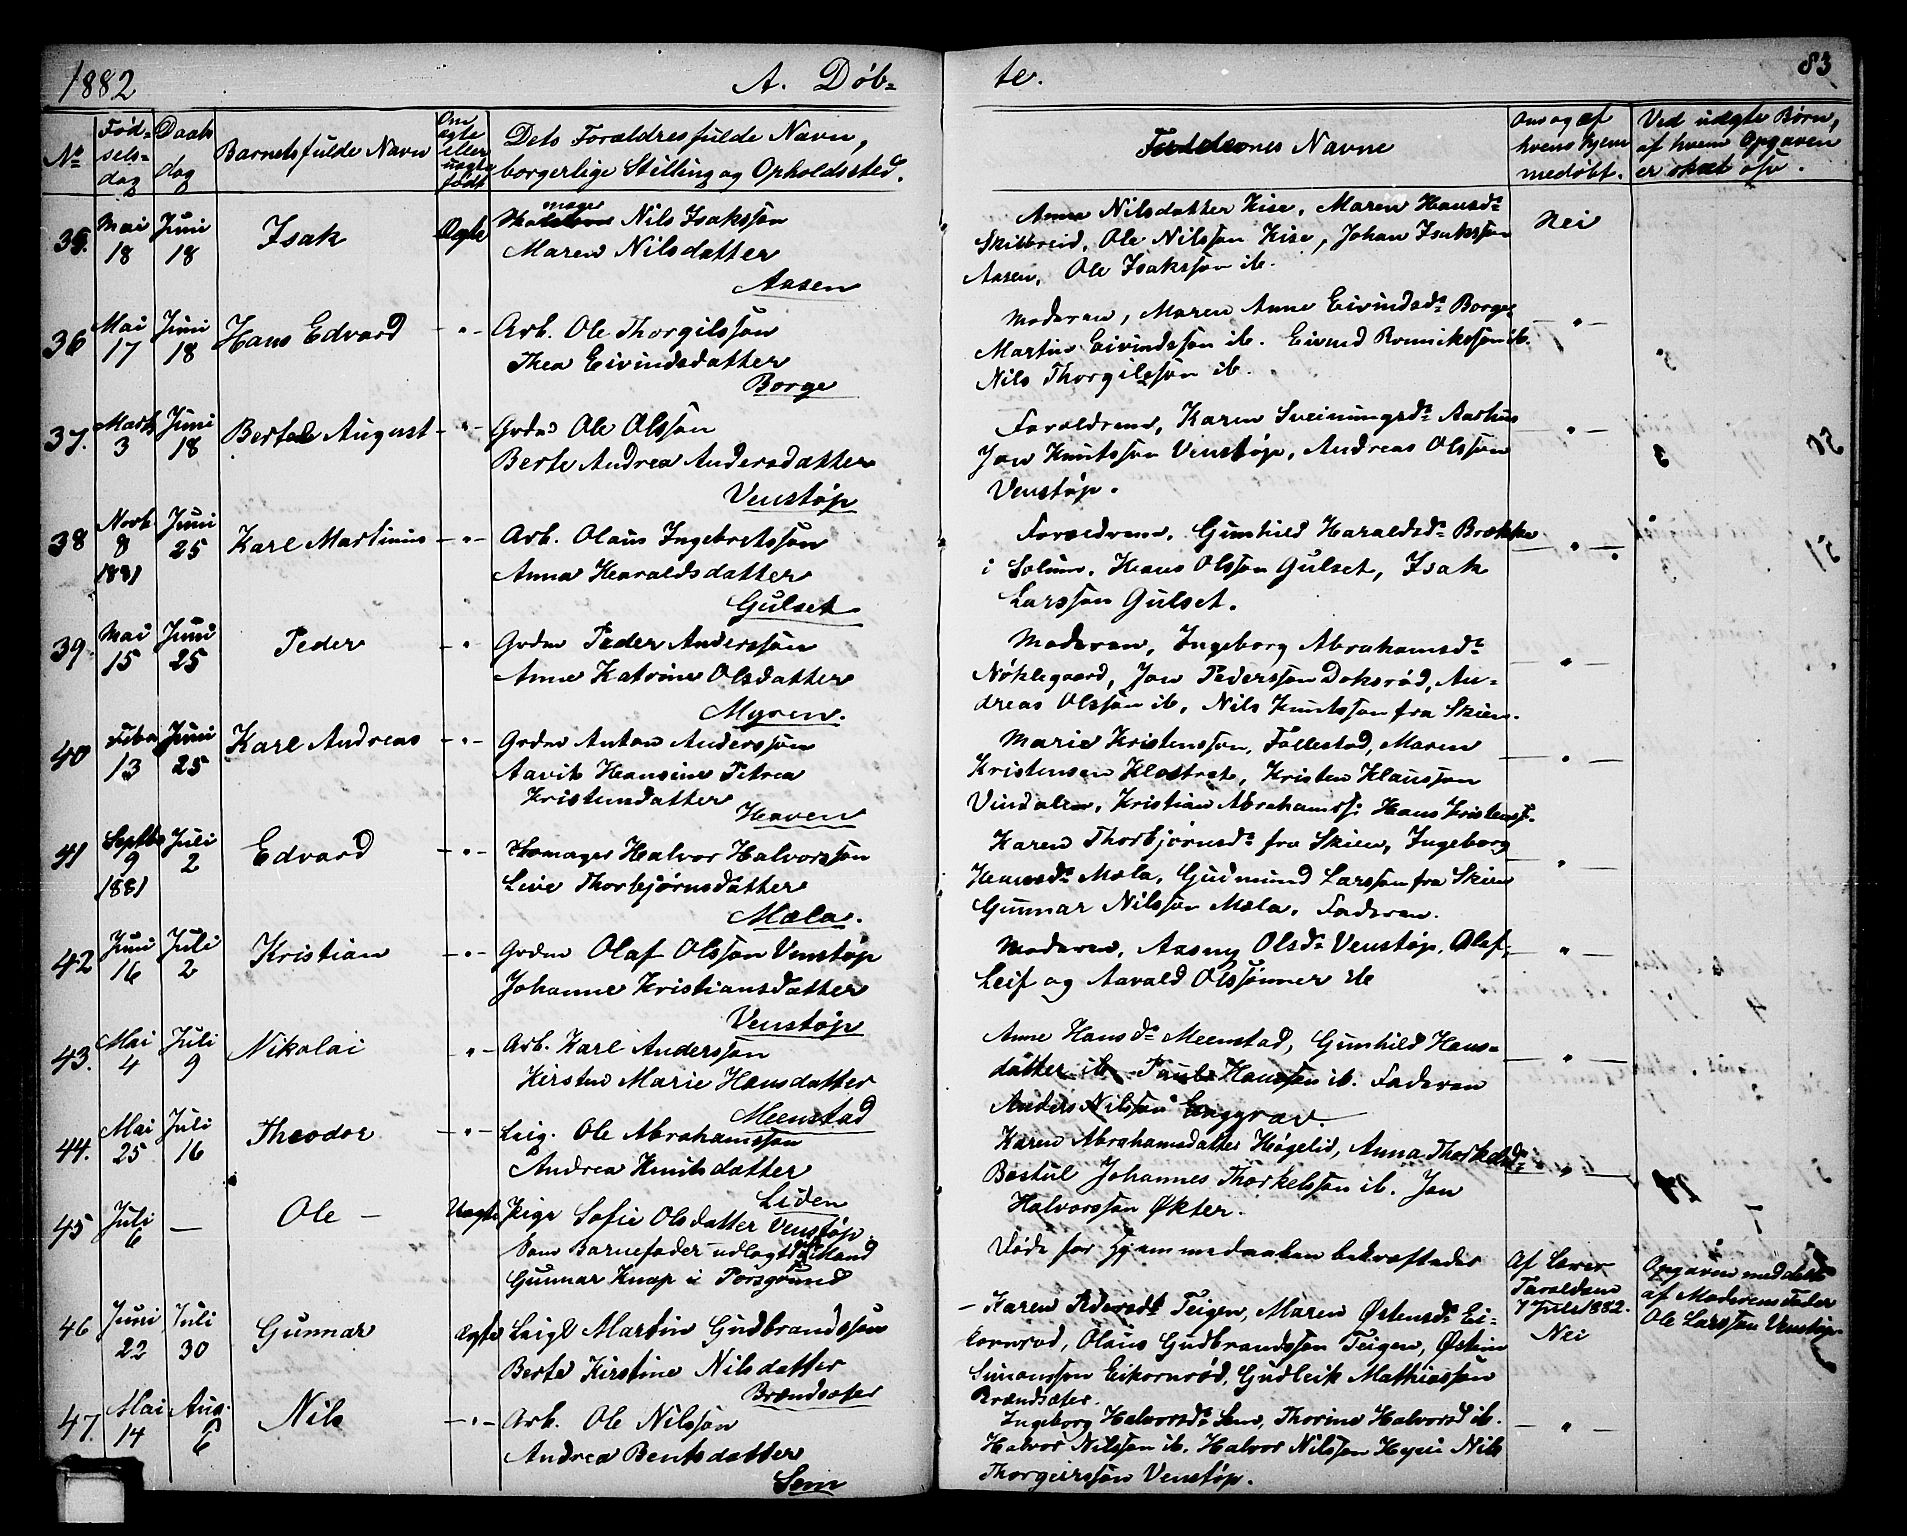 1882 A. Døb- te. 83
No Fød- Daabs Barnets fulde Navn Om Dets Forældres fulde Navn, Faddernes Navne Om og af Ved uægte Børn,
sels- dag ægte eller uægte født borgerlige Stilling og Opholdssted. hvem hjem- af hvem Opgaven
dag medøbt. er skæt osv.
35. Mai 18 Juni 18 Isak Ægte mager Nils Isakssøn
Maren Nilsdatter
Aasen
Anne Nilsdatter Kise, Maren Hansda
Skilbreid, Ole Nilssøn Kise, Johan Isakssøn
Aasen, Ole Isakssøn ib.
Nei
36 Mai 17 Juni 18 Hans Edvard - " - Arb. Ole Thorgilssøn
Thea Eivindsdatter
Borge
Moderen, Maren Anne Eivindsda Borge
Martin Eivindssøn ib. Eivind ib.
Nils Thorgilssøn ib.
37. Marts 3 Juni 18 August - " - Grdm Ole Olssøn
Berte Andrea Andersdatter
Venstøp
Forældrene, Karen Sveinungsda Aarhus
Jon Knutssøn Venstøp, Andreas Olssøn
Venstøp.
38 Novb 8 1881 Juni 25 Karl Martinius - " - Arb. Olaus Ingebretssøn
Anna Haraldsdatter
Gulset
Forældrene, Gunhild Haraldsda Brække
i Solum, Hans Olssøn Gulset, Isak
Larssøn Gulset.
39. Mai 15 Juni 25 Peder - " Grdm Peder Anderssøn
Anne Katrine Olsdatter
Myren.
Moderen, Ingeborg Abrahamsda
Nøklegaard, Jon Pederssøn Doksrød, An-
dreas Olssøn ib, Nils Knutssøn fra Skien.
40 Feba 13 Juni 25 Karl Andreas - " - Grdm Anton Anderssøn
Hansine Petrea
Kristensdatter
Haven
Marie Kristenssøn, Follestad, Maren
Kristensen Klostret, Kristen Klaussøn
Vindalen, Kristian Abrahamss. Hans Kristenss.
41 Septbr 9 1881 Juli 2 Edvard - " - Halvor Halvorssøn
Live Thorbjørnsdatter
Mæla.
Karen Thorbjørnsda fra Skien, Ingeborg
Hansda Mæla, Gudmund Larssøn fra Skien
Gunnar Nilssøn Mæla, Faderen.
42 Juni 16 Juli 2 Kristian - " - Grdm Olaf Olssøn Venstøp
Johanne Kristiansdatter
Venstøp
Moderen, Aasny Olsda Venstøp, Olaf,
Leif og Aavald Olssønner de
43. Mai 4 Juli 9 Nikolai " - Arb. Karl Anderssøn
Kirsten Marie Hansdatter
Meenstad
Anne Hansda Meenstad, Gunhild Hans-
datter ib Paul Hanssøn ib. Faderen
Anders Nilssøn Enggrav.
44. Mai 25 Juli 16 Theodor - " - Leig. Ole Abrahamssøn
Andrea Knutsdatter
Liden
Karen Abrahamsdatter Høgelid, Anna Thorkelsda
Bøstul Johannes Thorkelssøn ib. Jon
Halvorssøn Økter.
45 Juli 6 — Ole - Uægte Pige Sofie Olsdatter Venstøp
Som Barnefader udlagt Mand
Gunnar Knap i Porsgrund
Døde før Hjemmedaaben bekræftedes
Af Lærer
Taraldsen
7 Juli 1882.
Opgaven meddelt
af Moderens Fader
Ole Larssøn Venstøp
46 Juni 22 Juli 30 Gunnar Ægte Leigl Martin Gudbrandssøn
Berte Kirstine Nilsdatter
Brændsæter
- Karen Pedersda Teigen, Maren Østensda Ei-
kornrød, Olaus Gudbrandssøn Teigen, Østen
Simonssøn Eikornrød, Gudleik Mathiassøn
Brændsæter.
Nei
47. Mai 14 Aug. 6 Nils - " - Arb. Ole Nilssøn
Andrea Bentsdatter
Sem
Ingeborg Halvorsda Sem, Thorine Halvorsd ib.
Halvor Nilssøn ib, Halvor Nilssøn Hyni Nils
Thorgeirssøn Venstøp.